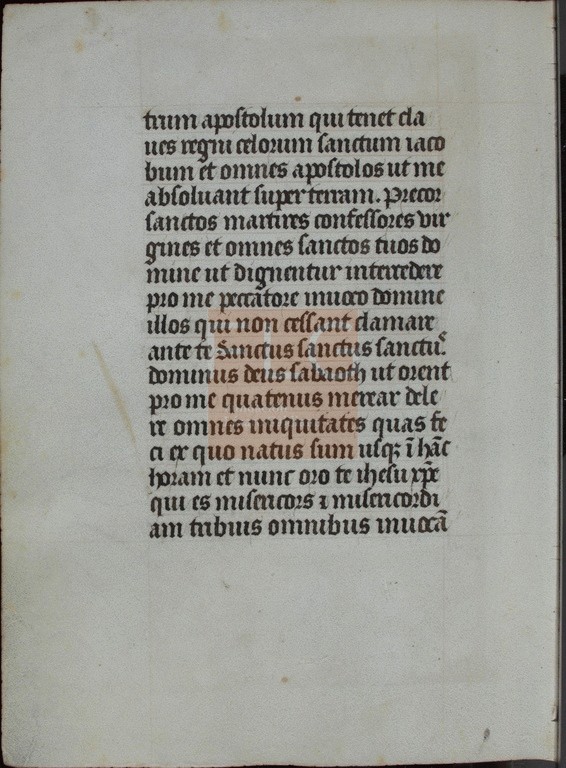 trum apostolum qui tenet cla
ues regni celorum sanctum iaco
bum et omnes apostolos ut me
absoluant super terram. Precor
sanctos martires confessores vir
gines et omnes sanctos tuos do
mine ut dignentur intercedere
pro me peccatore inuoco domine
illos qui non cessant clamare
ante te Sanctus sanctus sanctus
dominus deus sabaoth ut orent
pro me quatenus merear dele
re omnes iniquitates quas fe
ci ex quo natus sum usqz ĩ hãc
horam et nunc oro te ihesu xp̃e
qui es misericors ⁊ misericordi
am tribuis omnibus inuocã